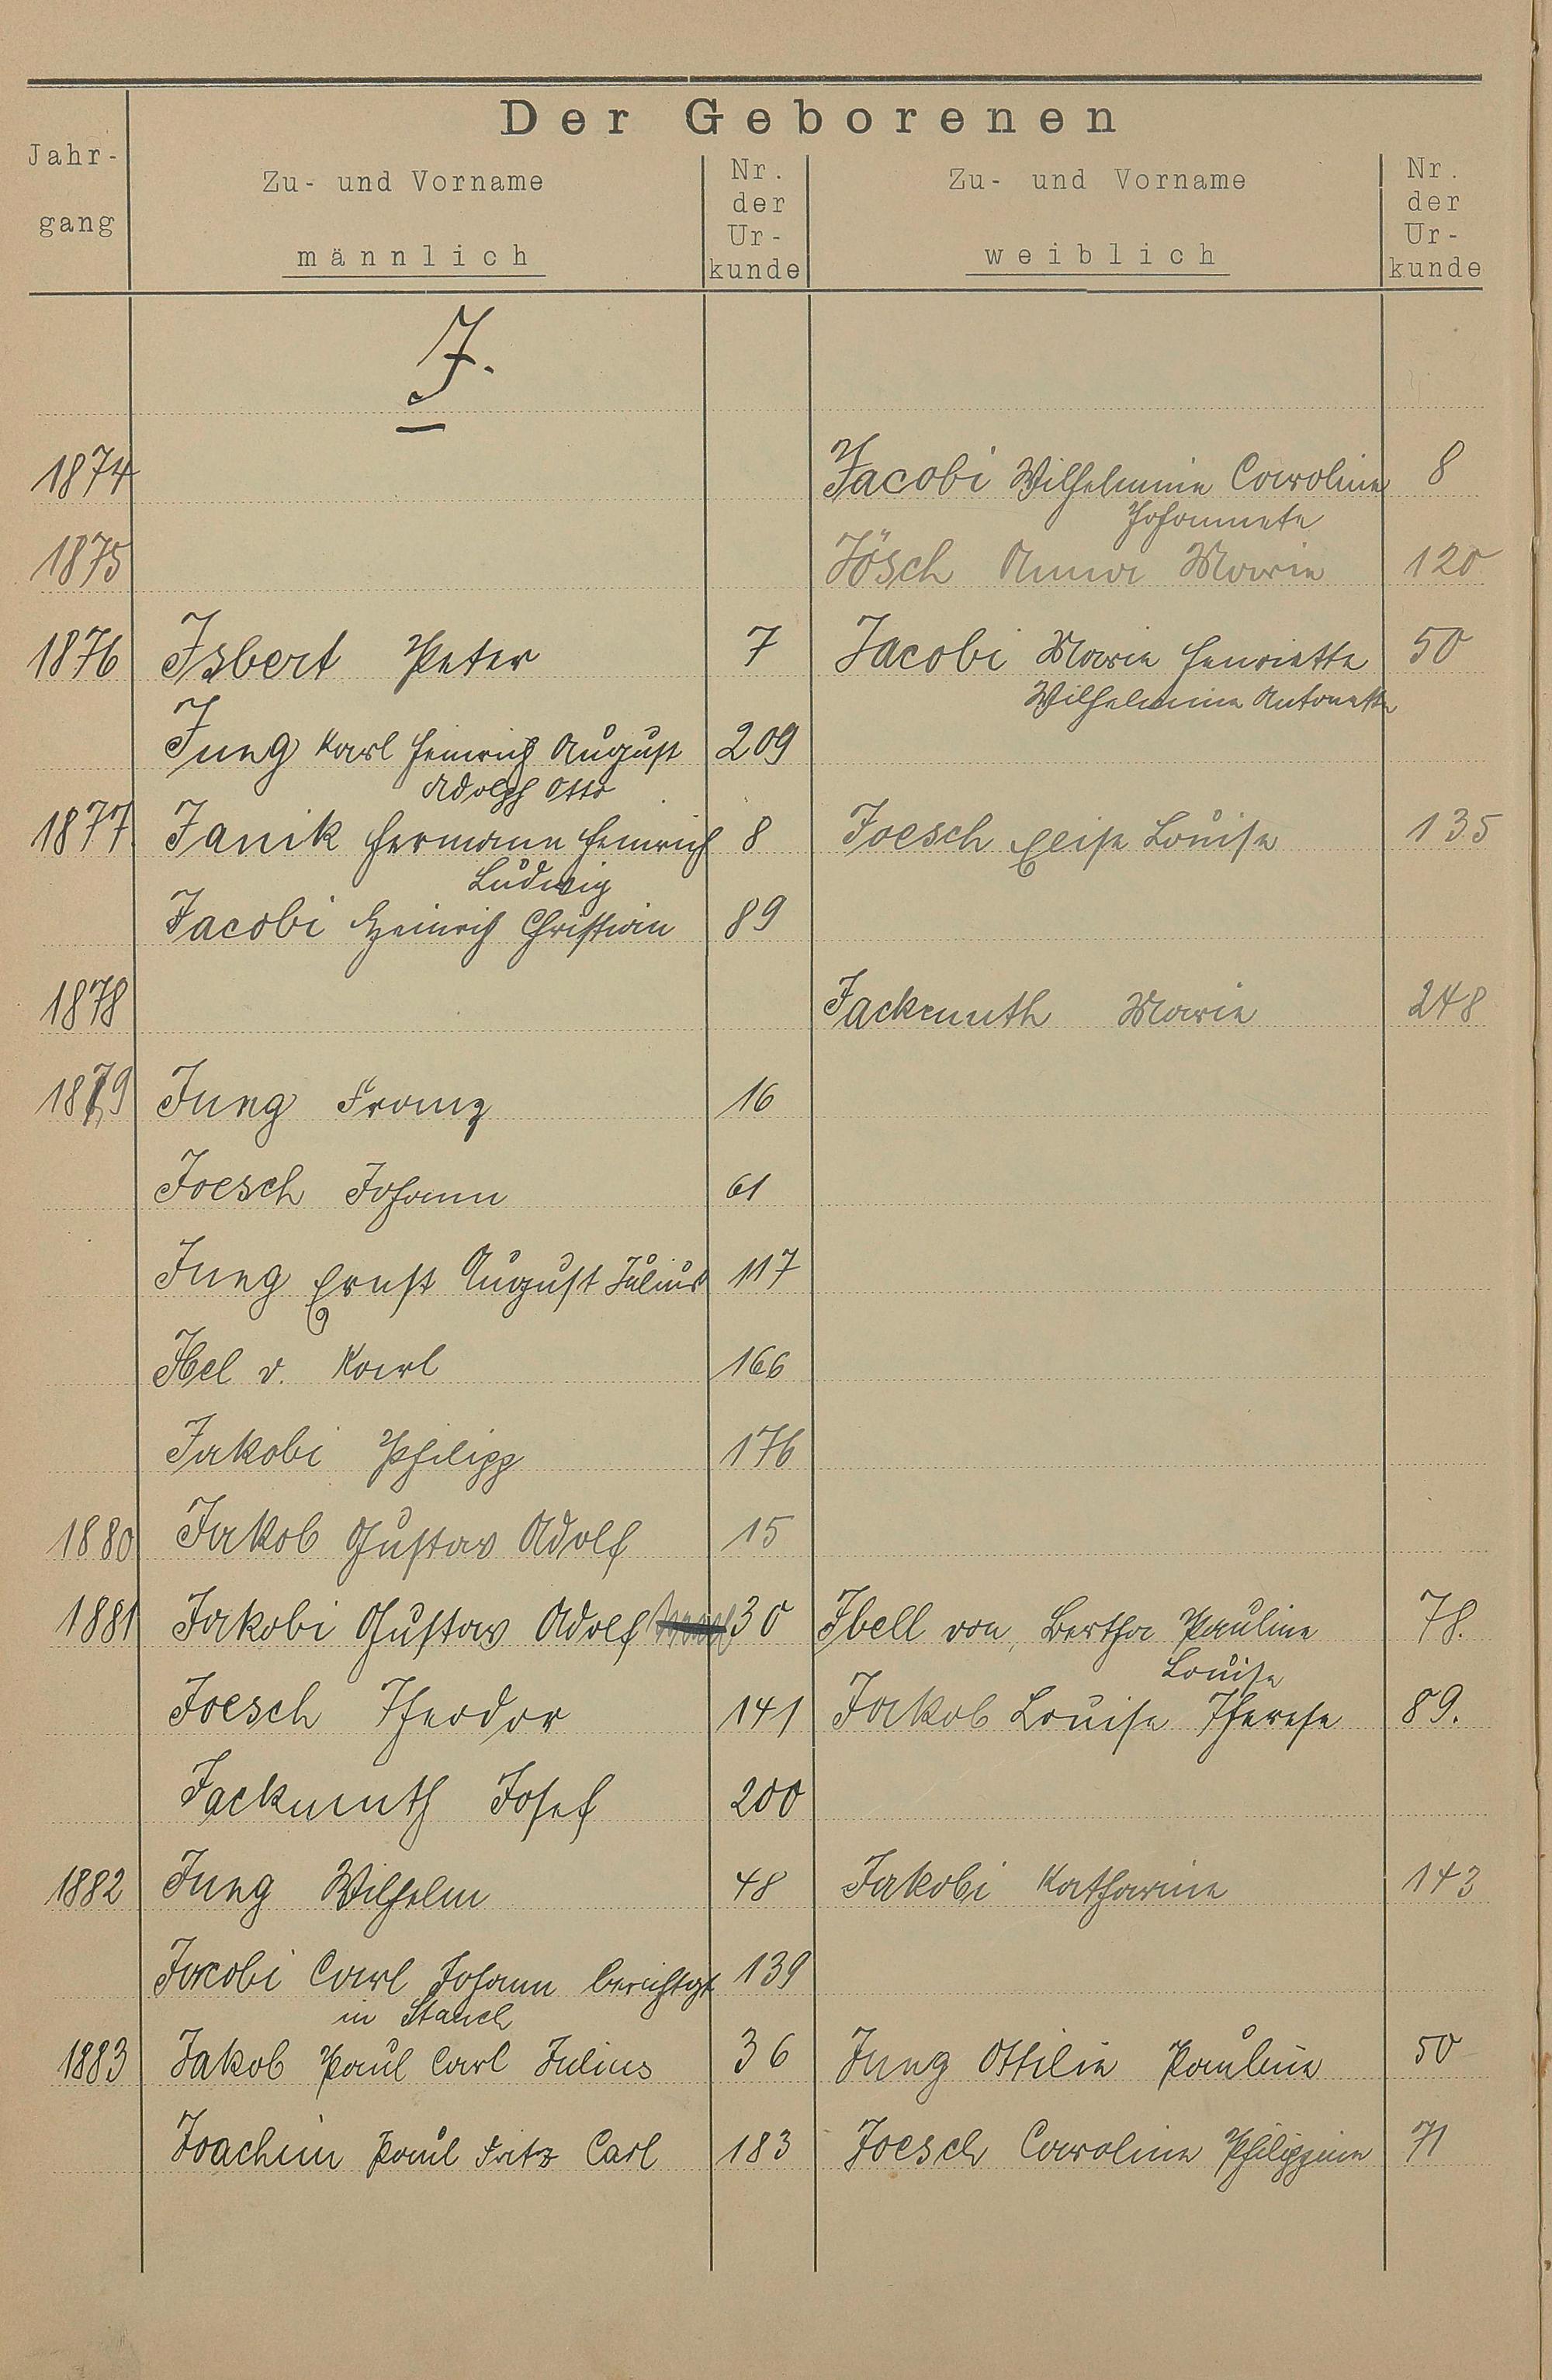 Der Geborenen
Jahr-
gang
Zu- und Vorname
männlich
Nr.
der
Ur-
kunde
Zu- und Vorname
weiblich
Nr.
der
Ur-
kunde
J.
1874 Jacobi Wilhelmine Caroline 8
Johannete
1875 Jösch Anna Marie 120
1876 Isbert Peter 7 Jacobi Marie Henriette 50
Wilhelmine Antonette
Jung Karl Heinrich August 209
Adolph Otto
1877 Janik Hermann Heinrich 8 Joesch Elise Louise 135
Ludwig
Jacobi Heinrich Christian 89
1878 Jackmuth Marie 248
1879 Jung Franz 16
Joesch Johann 61
Jung Ernst August Julius 117
Ibel v. Karl 166
Jakobi Philipp 176
1880 Jakob Gustav Adolf 15
1881 Jakobi Gustav Adolf 30 Ibell von, Bertha Pauline 78.
Louise
Joesch Theodor 141 Jakob Louise Therese 89.
Jackmuth Josef 200
1882 Jung Wilhelm 48 Jakobi Katharine 143
Jacobi Carl Johann berichtgt 139
in Stauch
1883 Jakob Paul Carl Julius 36 Jung Ottilie Pauline 50
Joachim Paul Fritz Carl 183 Joesch Caroline Philippine 71